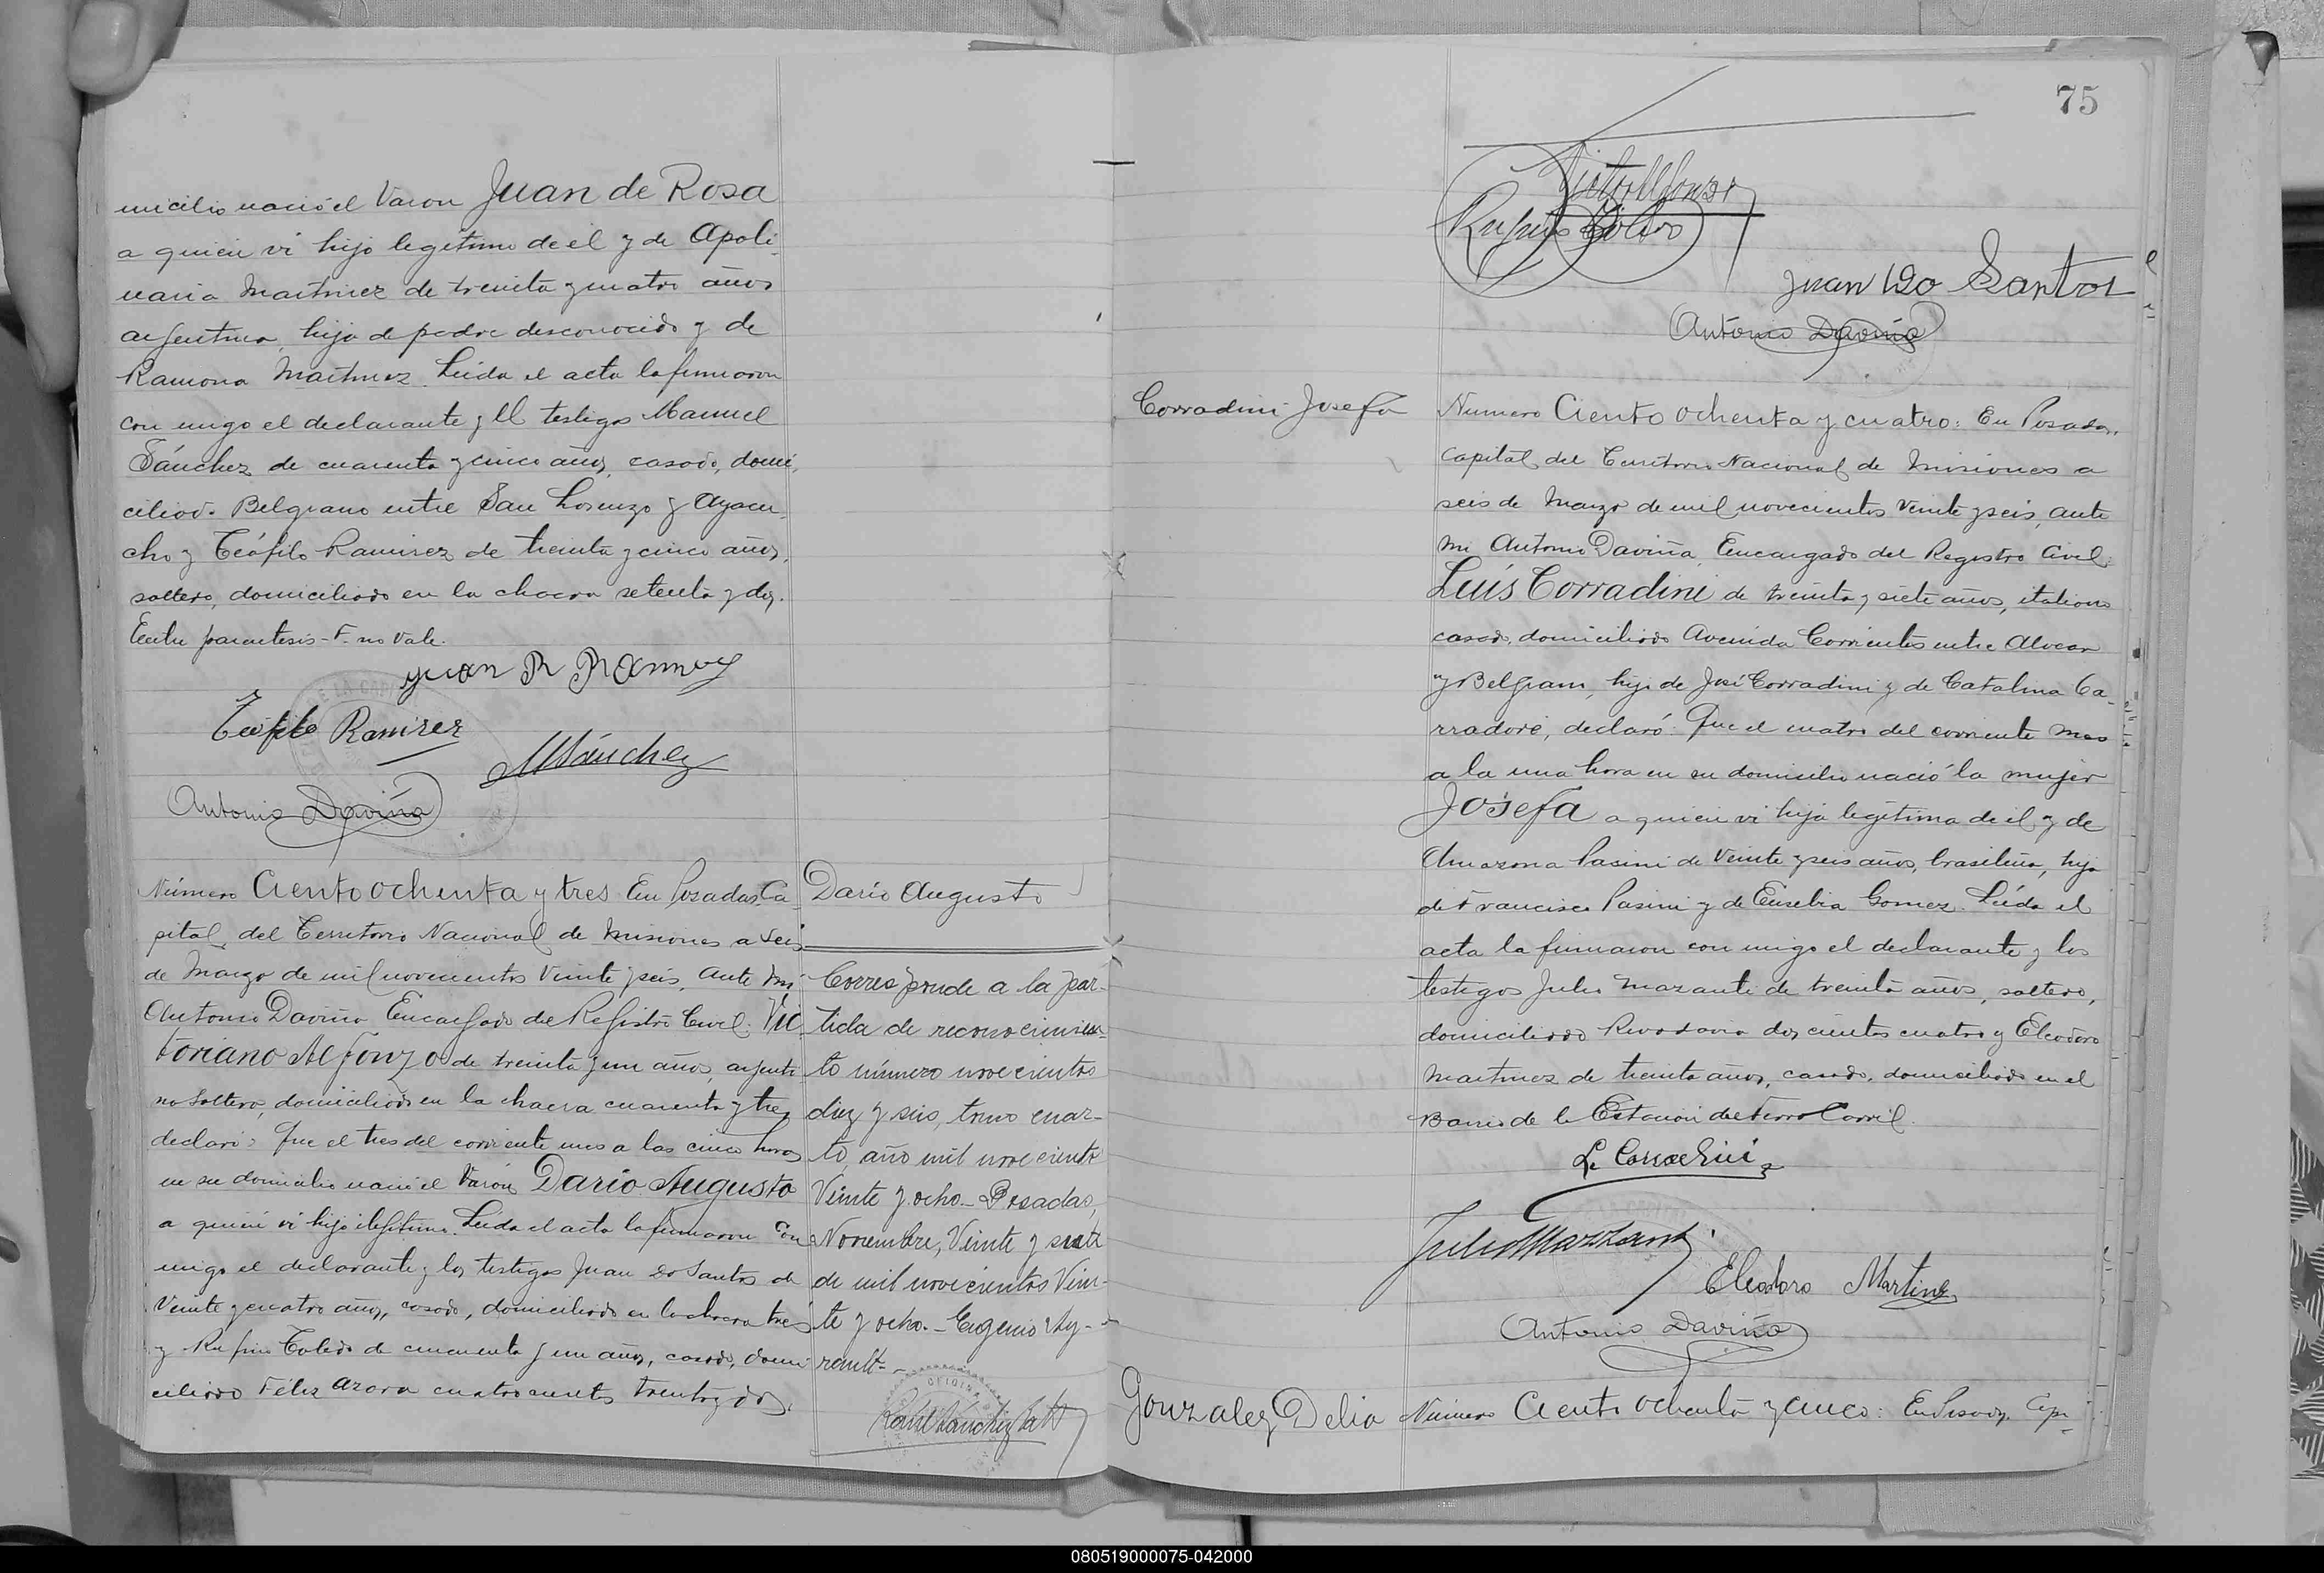 micilio nació el Varon Juan de Rosa
a quien vi hijo legitimo de el y de Apoli-
naria Martinez de treinta y cuatro años
argentina, hija de padre desconocido y de
Ramona Martinez. Leida el acta la firmaron
con migo el declarante y ll testigos Manuel
Sánchez de cuarenta y cinco años, casado, domi-
ciliado Belgrano entre San Lorenzo y Ayacu-
cho y Teófilo Ramirez de treinta y cinco años,
soltero, domiciliado en la chacra setenta y dos.
Entre parentesis - F. no vale.
Juan R Ramirez
Teofilo Ramirez
MSánchez
Antonio Daviña
Número Ciento ochenta y tres En Posadas, Ca-
pital, del Territorio Nacional de Misiones a seis
de Marzo de mil novecientos veinte y seis, ante mi
Antonio Daviña, Encargado del Registro Civil: Vic-
toriano Alfonzo de treinta y un años, argenti-
no soltero, domiciliado en la chacra cuarenta y tres
declaró: Que el tres del corriente mes a las cinco horas
en su domicilio nació el Varón Dario Augusto
a quien vi hijo ilegitimo. Leida el acta la firmaron con
migo el declarante y los testigos Juan Do Santos de
Veinte y cuatro años, casado, domiciliado en la chacra tres
y Rufino Toledo de cincuenta y un años, casado, domi-
ciliado Félix Azara cuatrocientos treinta y dos.
Dario Augusto
Corresponde a la par-
tida de reconocimien-
to número novecientos
diez y seis, tomo cuar-
to, año mil novecientos
Veinte y ocho.- Posadas,
Noviembre, Veinte y siete
de mil novecientos Vein-
te y ocho.- Eugenio Ay-
rault.-
75
Victor Alfonzo
Rufino Toledo
Juan Do Santos
Antonio Daviña
Corradini Josefa
Numero Ciento ochenta y cuatro: En Posadas,
Capital, del Territorio Nacional de Misiones a
seis de Marzo de mil novecientos Veinte y seis, ante
mi Antonio Daviña, Encargado del Registro Civil:
Luís Corradini de treinta y siete años, italiano
casado, domiciliado Avenida Corrientes entre Alvear
y Belgrano, hijo de José Corradini y de Catalina Ca-
rradore, declaró: Que el cuatro del corriente mes
a la una hora en su domicilio nació la mujer
Josefa a quien vi hija legitima de el y de
Amazona Pasini de Veinte y seis años, brasileña, hija
de Francisco Pasini y de Eusebia Gomez. Leída el
acta la firmaron con migo el declarante y los
testigos Julio Mazanti de treinta años, soltero,
domiciliado Rivadavia dos cientos cuatro y Eleodoro
Martinez de treinta años, casado, domiciliado en el
Barrio de la Estación del Ferro Carril.
L. Corradini
Julio Mazzanti
Eleodoro Martinez
Antonio Daviña
Gonzalez Delia
Número Ciento ochenta y cinco: En Posadas, Cap-
080519000075-042000